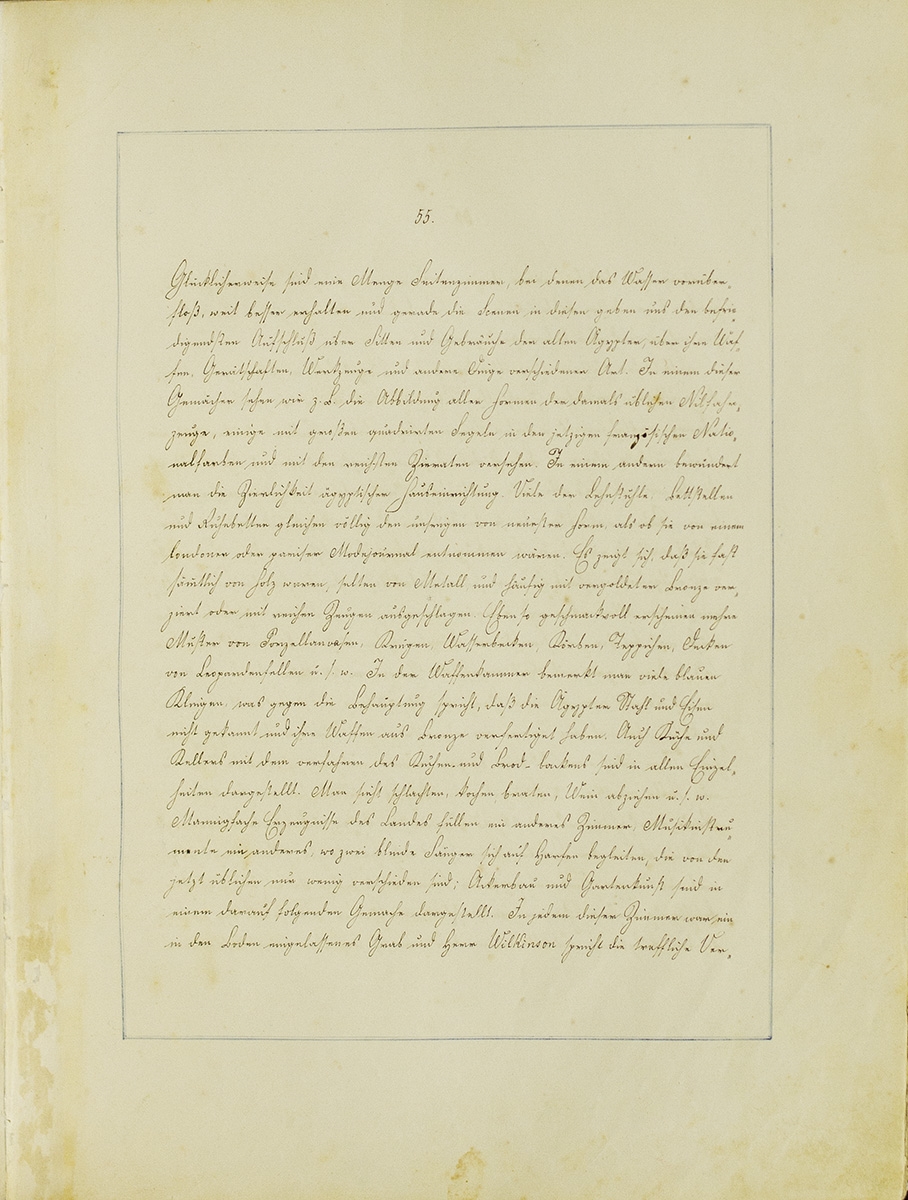 55.
Glücklicherweise sind eine Menge Seitenzimmer, bei denen das Wasser vorüber-
floß, weit besser erhalten und gerade die Scenen in diesen geben uns den befrie-
digendsten Aufschluß über Sitten und Gebräuche der alten Ägypter, über ihre Waf-
fen, Gerätschaften, Werkzeuge und andere Dinge verschiedener Art. In einem dieser
Gemächer sehen wir z. B. die Abbildung aller Formen der damals üblichen Nilfahr-
zeuge, einige mit großen quadrirten Segeln in den jetzigen französischen Natio-
nalfarben und mit den reichsten Zieraten versehen. In einem andern bewundert
man die Zierlichkeit ägyptischer Hauseinrichtung. Viele der Lehnstühle, Bettstellen
und Ruhebetten gleichen völlig den unsrigen von neuester Form, als ob sie von einem
londoner oder pariser Modejournal entnommen wären. Es zeigt sich, daß sie fast
sämtlich von Holz waren, selten von Metall und häufig mit vergoldeter Bronze ver-
ziert oder mit reichen Zeugen ausgeschlagen. Eben so geschmackvoll erscheinen mehre
Muster von Porzellanvasen, Krügen, Wasserbecken, Körben, Teppichen, Decken
von Leopardenfellen u. s. w. In der Waffenkammer bemerkt man viele blauen
Klingen, was gegen die Behauptung spricht, daß die Ägypter Stahl und Eisen
nicht gekannt und ihre Waffen aus Bronze verfertiget haben. Auch Küche und
Kellers mit dem verfahren des Kuchen- und Brod-backens sind in allen Einzel-
heiten dargestellt. Man sieht schlachten, kochen braten, Wein abziehen u. s. w.
Mannigfache Erzeugnisse des Landes füllen ein anderes Zimmer, Musikinstru-
mente ein anderes, wo zwei blinde Sänger sich auf Harfen begleiten, die von den
jetzt üblichen nur wenig verschieden sind; Ackerbau und Gartenkunst sind in
einem darauf folgenden Gemache dargestellt. In jedem dieser Zimmer war ein
in den Boden eingelassenes Grab und Herr Wilkinson spricht die treffliche Ver-